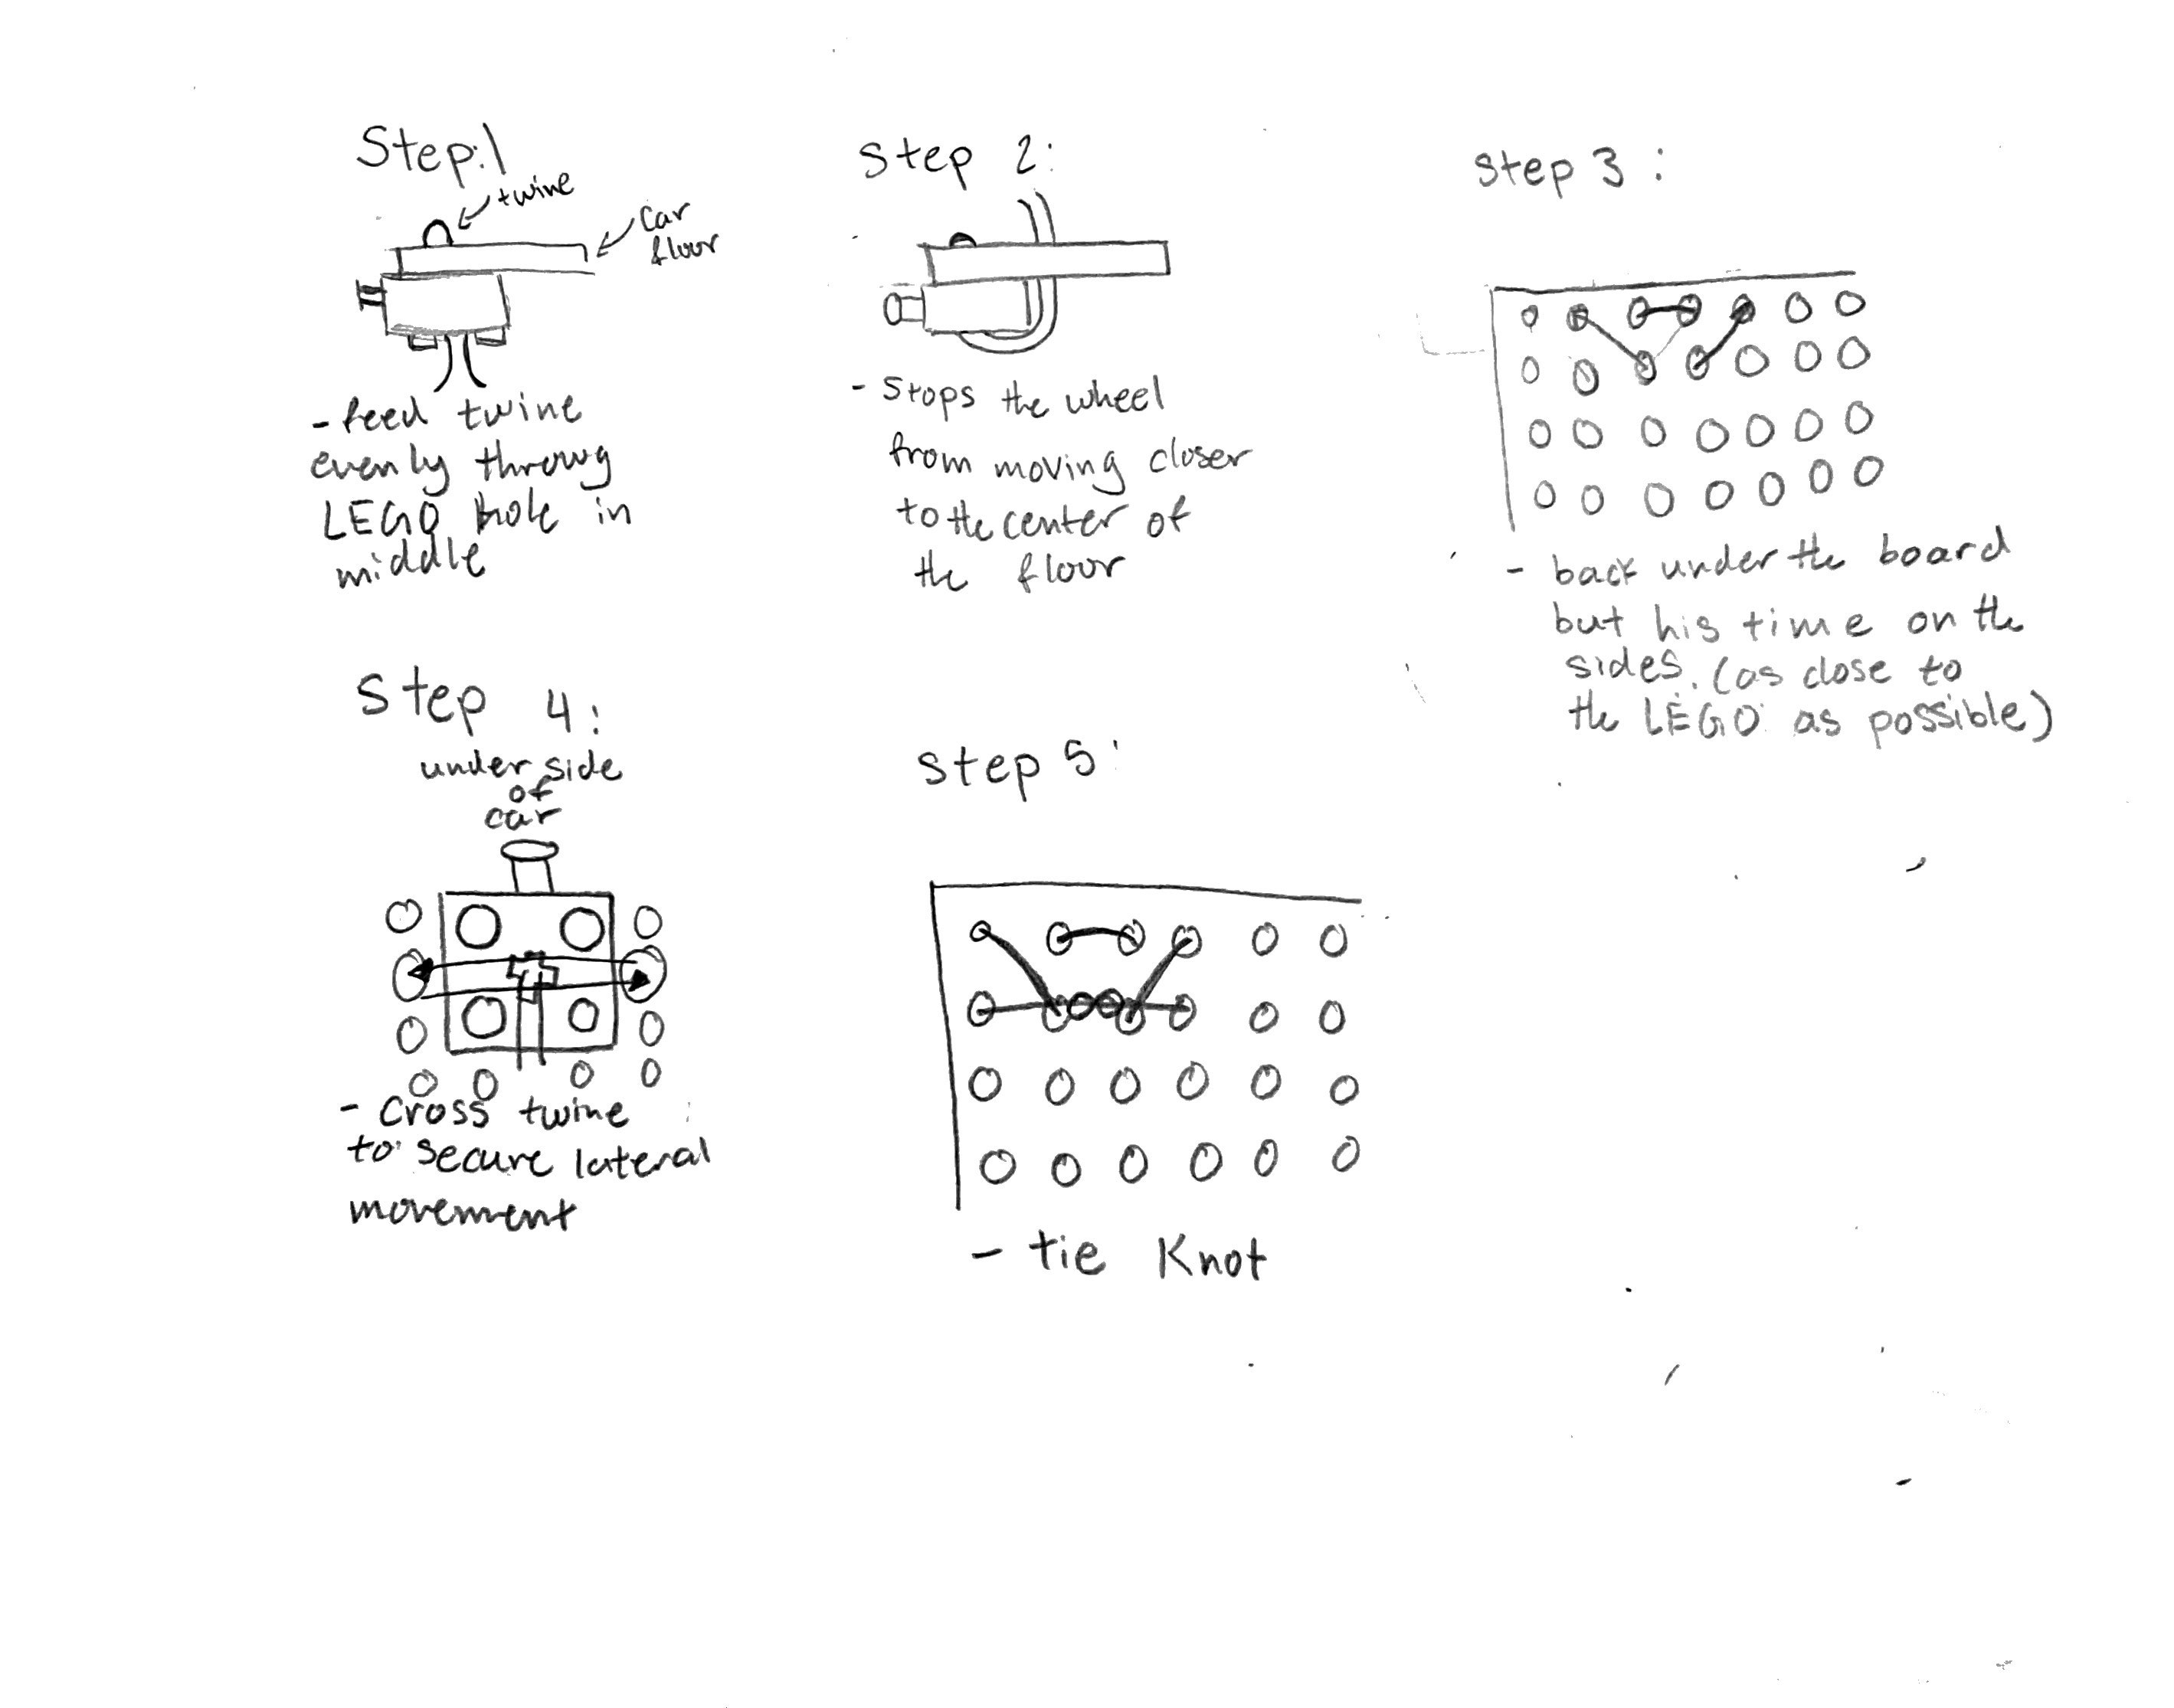 Step:1
twine
Car
floor
- feed twine
evenly throug
LEGO hole in
middle
Step 2:
- Stops the wheel
from moving closer
to the center of
the floor
Step 3:
- back under the board
but his time on the
sides. (as close to
the LEGO as possible)
Step 4:
under side
of
car
- cross twine
to secure lateral
movement
Step 5:
- tie Knot